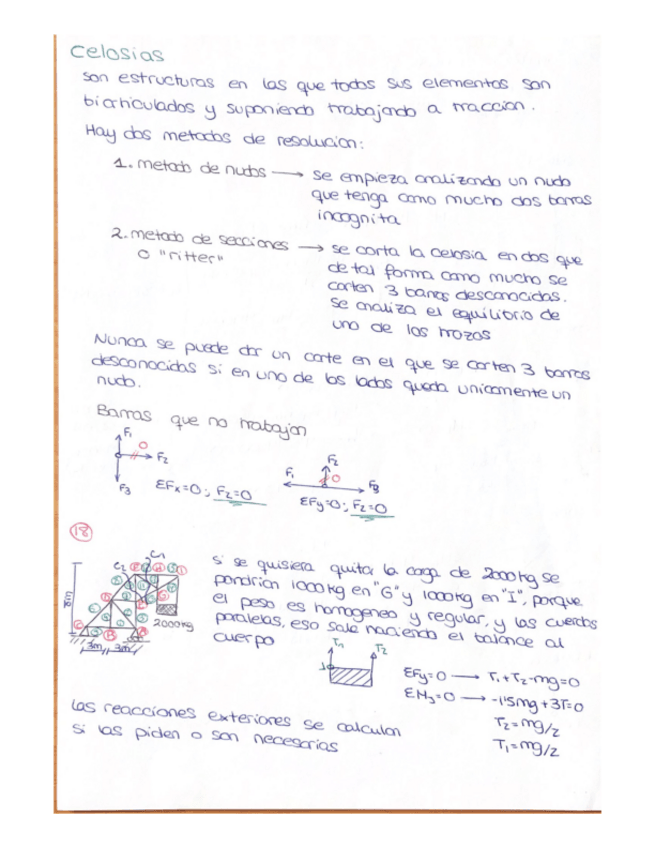 Celosias
son estructuras en las que todos sus elementos son
biarticulados y suponiendo trabajando a traccion.
Hay dos metodos de resolucion:
1. metodo de nudos → se empieza analizando un nudo
que tenga como mucho dos barras
incognita
2. metodo de secciones → se corta la celosia en dos que
o "ritter"
de tal forma como mucho se
corten 3 barras desconocidas.
se analiza el equilibrio de
uno de los trozos
Nunca se puede dar un corte en el que se corten 3 barras
desconocidas si en uno de los lados queda unicamente un
nudo.
Barras que no trabajan
F₁
0
F₂
F₃
ΣFx=0; F₂=0
F₁
F₂
0
F3
ΣFy=0; F₂=0
18
C1
C2
2000kg
3m
3m
si se quisiera quitar la carga de 2000kg se
pondrian 1000kg en "G" y 1000kg en "I", porque
el peso es homogeneo y regular, y las cuerdas
paralelas, eso sale haciendo el balance al
cuerpo
T₁
T₂
ΣFy=0 → T₁+T₂-mg=0
ΣM3=0 → -1'5mg+3T=0
T₂=mg/2
T₁=mg/2
Las reacciones exteriores se calculan
si las piden o son necesarias